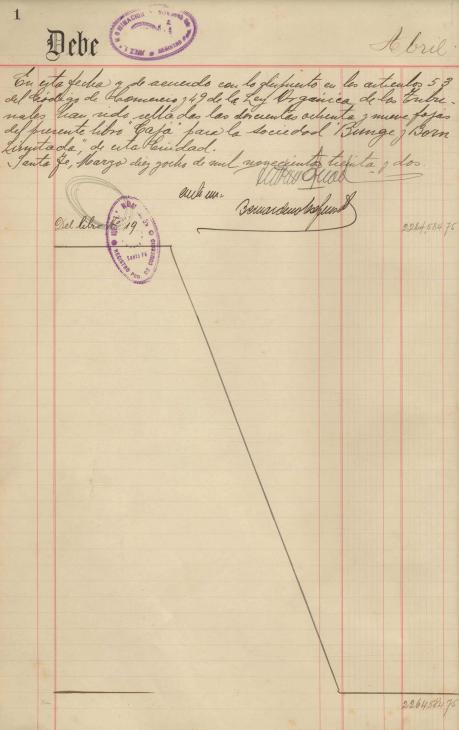 1
Debe
Abril
En esta fecha y de acuerdo con lo dispuesto en los articulos 53
del Código de Comercio y 49 de la Ley Orgánica de los Tribu-
nales han sido selladas las doscientas ochenta y nueve fojas
del presente libro Caja para la sociedad "Bunge y Born
Limitada", de esta ciudad.
Santa Fe, Marzo diez y ocho de mil novecientos treinta y dos.
Ante mi:
Del libro No 19
SANTA FE
226458475